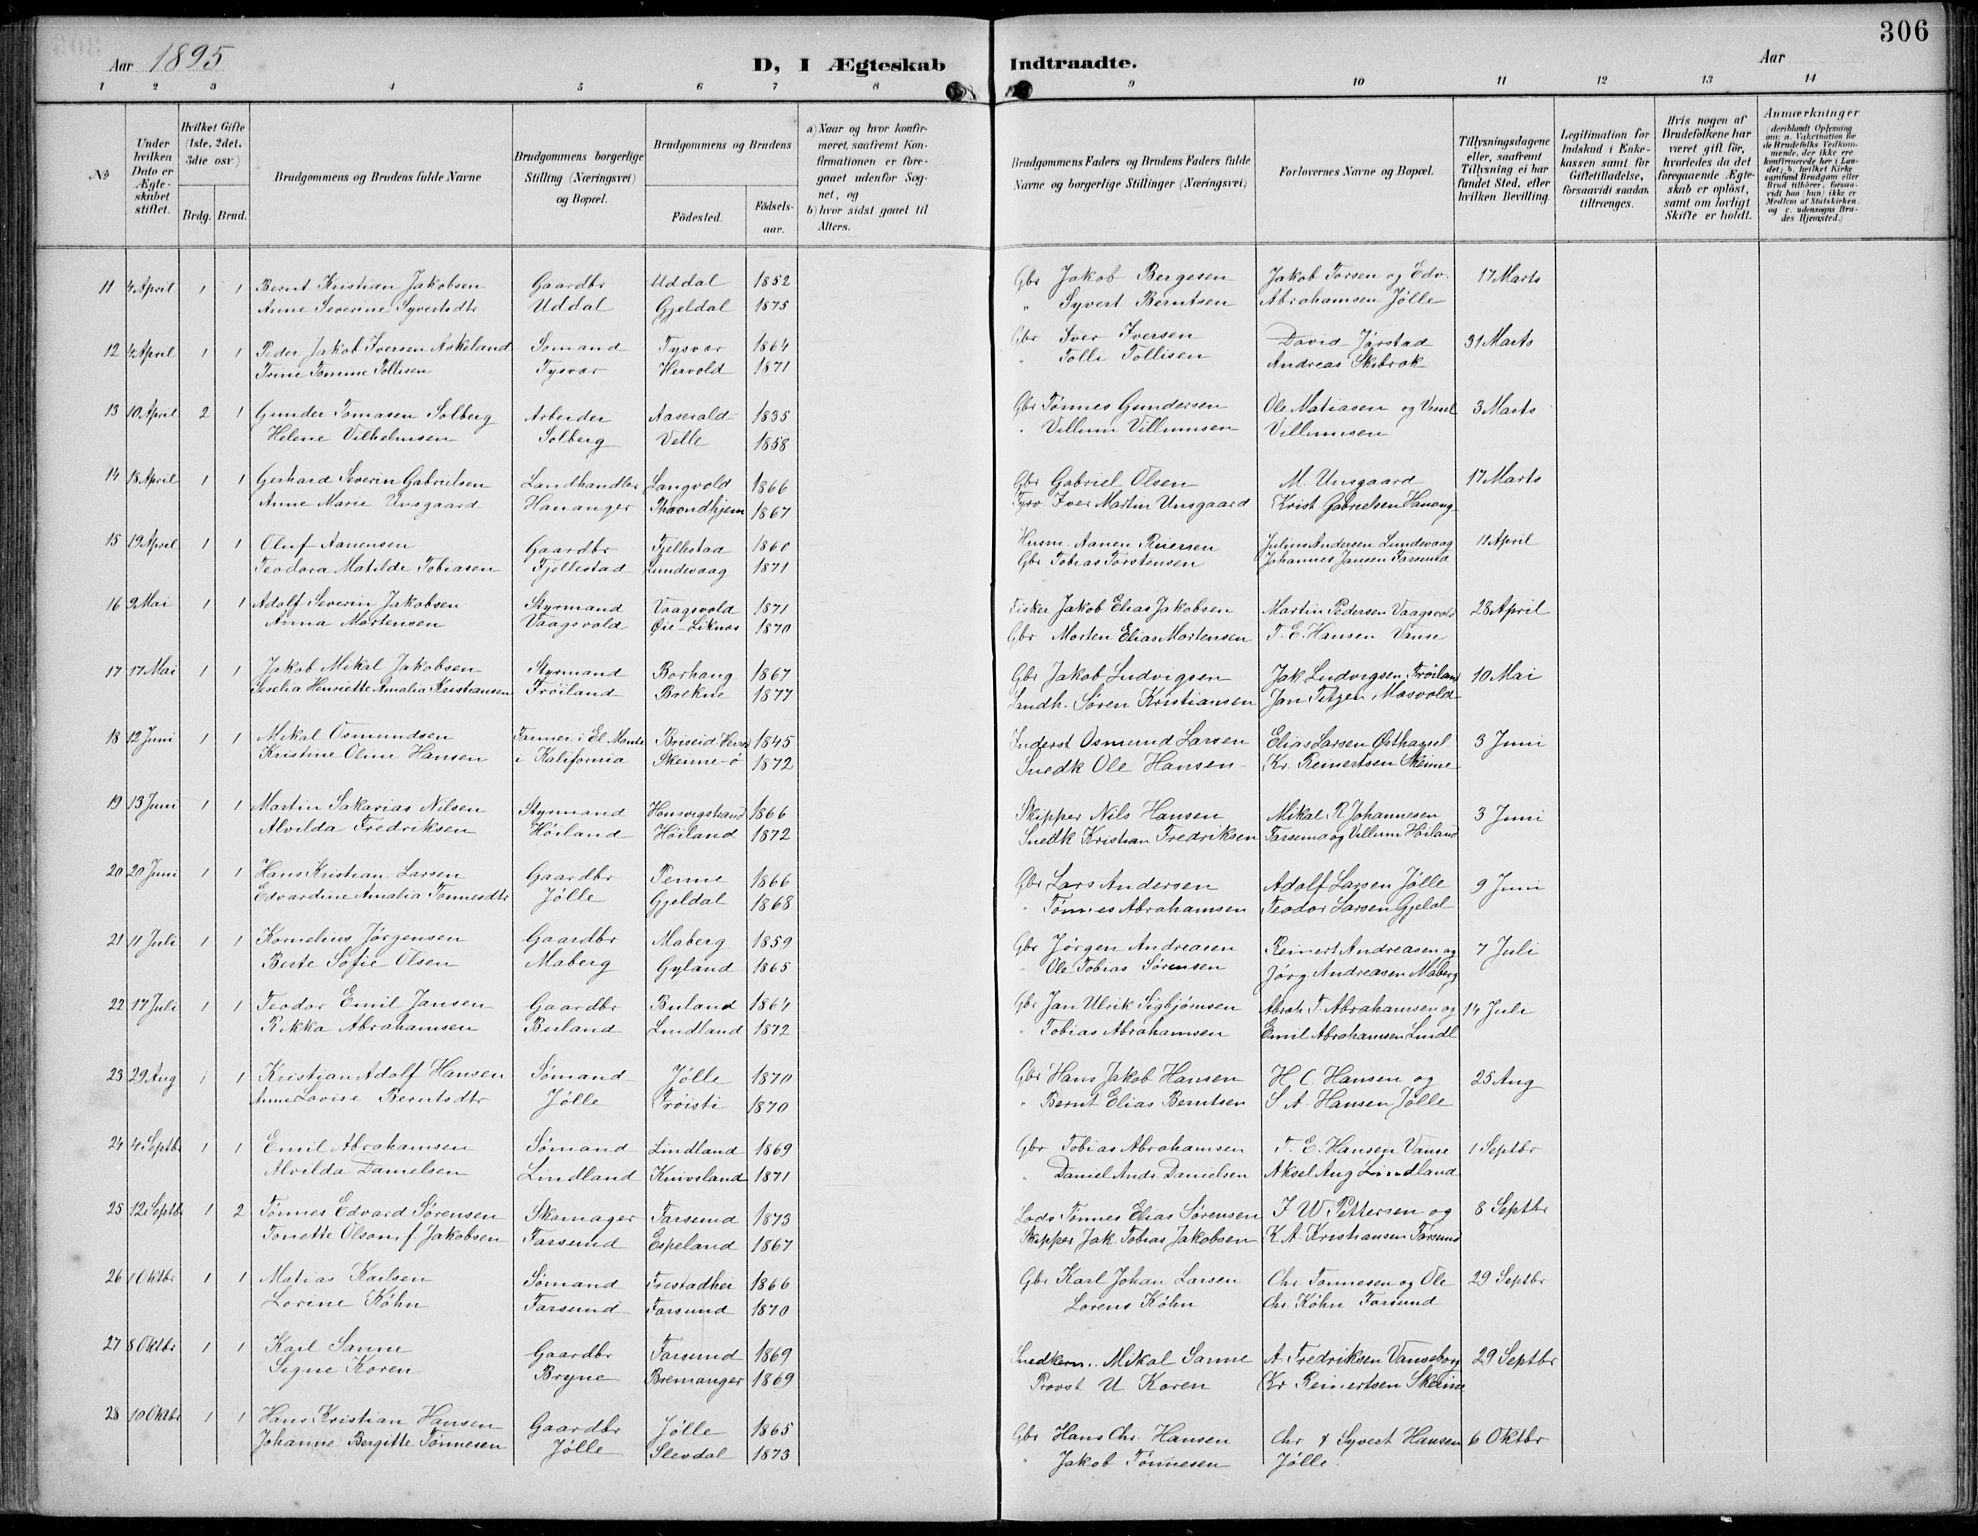 306
Aar 1895
D, I Ægteskab Indtraadte.
Aar
1 2 3 4 5 6 7 8 9 10 11 12 13 14
№
Under hvilken Dato er Ægteskabet stiftet.
Hvilket Gifte (1ste, 2det, 3die osv.)
Brdg. Brud.
Brudgommens og Brudens fulde Navne
Brudgommens borgerlige Stilling (Næringsvei) og Bopæl.
Brudgommens og Brudens
Fødested.
Fødsels-aar.
a) Naar og hvor konfirmeret, saafremt Konfirmationen er foregaaet udenfor Sognet, og
b) hvor sidst gaaet til Alters.
Brudgommens Faders og Brudens Faders fulde Navne og borgerlige Stillinger (Næringsvei)
Forlovernes Navne og Bopæl.
Tillysningsdagene eller, saafremt Tillysning ei har fundet Sted, efter hvilken Bevilling.
Legitimation for Indskud i Enkekassen samt for Giftetilladelse, forsaavidt saadan tiltrænges.
Hvis nogen af Brudefolkene har været gift før, hvorledes da det foregaaende Ægteskab er opløst, samt om lovligt Skifte er holdt.
Anmærkninger
(deriblandt Oplysning om: a. Vakcination for de Brudefolks Vedkommende, der ikke ere konfirmerede her i Landet; b. hvilket Kirkesamfund Brudgom eller Brud tilhører, forsaavidt han (hun) ikke er Medlem af Statskirken, og c. udensogns Brudes Hjemsted.)
11 4 April 1 1 Bernt Kristian Jakobsen Gaardbr Uddal 1852 Gbr Jakob Bergesen Jakob Torsen og Edv. 17 Marts
Anne Severine Syvertsdtr Uddal Gjeldal 1875 " Syvert Berntsen Abrahamsen Jølle
12 4 April 1 1 Peder Jakob Iversen Askeland Sømand Tysvær 1864 Gbr Iver Iversen David Jørstad 31 Marts
Trine Tomine Tollisen Tysvær Hervold 1871 " Tolli Tollisen Andreas Skibrok
13 10 April 2 1 Gunder Tomasen Solberg Arbeider Aaserald 1835 Gbr Tønnes Gundersen Ole Matiasen og 3 Marts
Helene Vilhelmsen Solberg Velle 1858 " Villum Villumsen Villumsen
14 18 April 1 1 Gerhard Severin Gabrielsen Landhandler Langvold 1866 Gbr Gabriel Olsen M. Unsgaard 17 Marts
Anne Marie Unsgaard Hananger Throndhjem 1867 Iver Martin Unsgaard Krist. Gabrielsen Hanang
15 19 April 1 1 Oluf Aanensen Gaardbr Fjellestad 1860 Husm. Aanen Reiersen Julius Andersen Lundevaag 11 April
Teodora Matilde Tobiasen Fjellestad Lundevaag 1871 Gbr Tobias Torstensen Johannes Jansen Farsund
16 9 Mai 1 1 Adolf Severin Jakobsen Styrmand Vaagsvold 1871 Fisker Jakob Elias Jakobsen Martin Pedersen Vaagsvold 28 April
Anna Mortensen Vaagsvold Øie-Liknes 1870 Gbr Morten Elias Mortensen T. E. Hansen Vanse
17 17 Mai 1 1 Jakob Mikal Jakobsen Styrmand Borhaug 1867 Gbr Jakob Ludvigsen Jak Ludvigsen Frøiland 10 Mai
Henriette Amalia Kristiansen Frøiland Brekne 1877 Landh. Søren Kristiansen Jan Titzen Mosvold
18 12 Juni 1 1 Mikal Osmundsen Farmer i El Monte Briseid Herred 1845 Inderst Osmund Larsen Elias Larsen Østhassel 3 Juni
Kristine Oline Hansen i Kalifornia Skeime-ø 1872 Snedk Ole Hansen Kr. Reinertsen Skeime
19 13 Juni 1 1 Martin Sakarias Nilsen Styrmand Honsvigstrand 1866 Skipper Nils Hansen Mikal R Johannesen 3 Juni
Alvilda Fredriksen Høiland Høiland 1872 Snedk Kristian Fredriksen Farsund og Villum Høiland
20 20 Juni 1 1 Hans Kristian Larsen Gaardbr Penne 1866 Gbr Lars Andersen Adolf Larsen Jølle 9 Juni
Edvardine Amalia Tønnesdtr Jølle Gjeldal 1868 " Tønnes Abrahamsen Teodor Larsen Gjeldl
21 11 Juli 1 1 Kornelius Jørgensen Gaardbr Maberg 1859 Gbr Jørgen Andreasen Reinert Andreasen og 7 Juli
Berte Sofie Olsen Maberg Gyland 1865 " Ole Tobias Sørensen Jørg Andreasen Maberg
22 17 Juli 1 1 Teodor Emil Jansen Gaardbr Buland 1864 Gbr Jan Ulrik Sigbjørnsen Abrah T. Abrahamsen og 14 Juli
Rikka Abrahamsen Buland Lindland 1872 " Tobias Abrahamsen Emil Abrahamsen Lindl
23 29 Aug 1 1 Kristian Adolf Hansen Sømand Jølle 1870 Gbr Hans Jakob Hansen H. C. Hansen og 25 Aug
Anne Lovise Berntsdtr Jølle Trøisti 1870 " Bernt Elias Berntsen S. A. Hansen Jølle
24 4 Septbr 1 1 Emil Abrahamsen Sømand Lindland 1869 Gbr Tobias Abrahamsen T. E. Hansen Vanse 1 Septbr
Alvilda Danielsen Lindland Knivsland 1871 " Daniel Ands Danielsen Aksel Aug Lindland
25 12 Septbr 1 2 Tønnes Edvard Sørensen Skomager Farsund 1873 Lods Tønnes Elias Sørensen J W Pettersen og 8 Septbr
Tonette Olson f Jakobsen Farsund Espeland 1867 Skipper Jak. Tobias Jakobsen K. A. Kristiansen Farsund
26 1 Oktbr 1 1 Matias Karlsen Sømand Frestadhei 1866 Gbr Karl Johan Larsen Chr. Tønnesen og Ole 29 Septbr
Lorine Køhn Farsund Farsund 1870 Lorens Køhn Chr. Køhn Farsund
27 8 Oktbr 1 1 Karl Sanne Gaardbr Farsund 1869 Snedkerm. Mikal Sanne A Fredriksen Vanseborg 29 Septbr
Signe Koren Bryne Bremanger 1869 Provst U Koren Kr Reinertsen Skeime
28 10 Oktbr 1 1 Hans Kristian Hansen Gaardbr Jølle 1865 Gbr Hans Chr. Hansen Chr & Syvert Hansen 6 Oktbr
Johanne Bergitte Tønnesen Jølle Slevdal 1873 " Jakob Tønnesen Jølle.